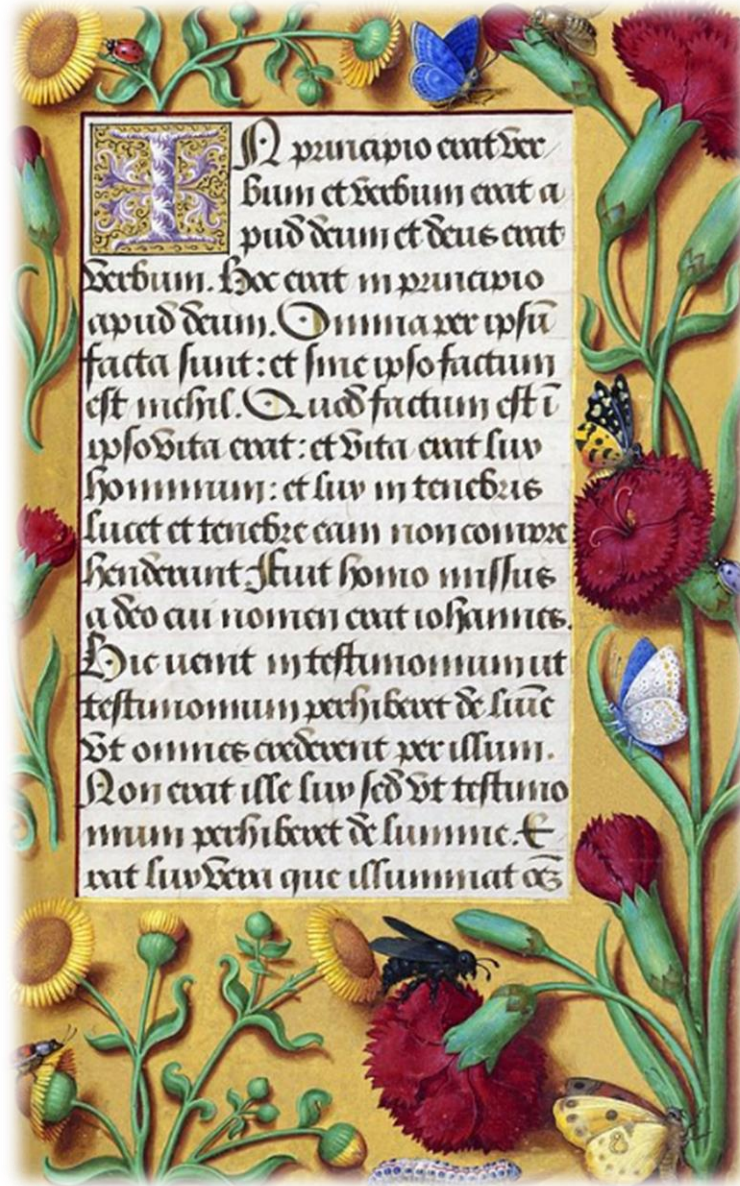 In principio erat ver
bum et verbum erat a
pud deum et deus erat
verbum. Hoc erat in principio
apud deum. Omnia per ipsū
facta sunt: et sine ipso factum
est nichil. Quod factum est ī
ipso vita erat: et vita erat lux
hominum: et lux in tenebris
lucet et tenebre eam non compre
henderunt Fuit homo missus
a deo cui nomen erat iohannes.
Hic uenit in testimonium ut
testimonium perhiberet de lumīe
Vt omnes crederent per illum.
Non erat ille lux sed vt testimo
nium perhiberet de lumine. E
rat lux vera que illuminat oēs